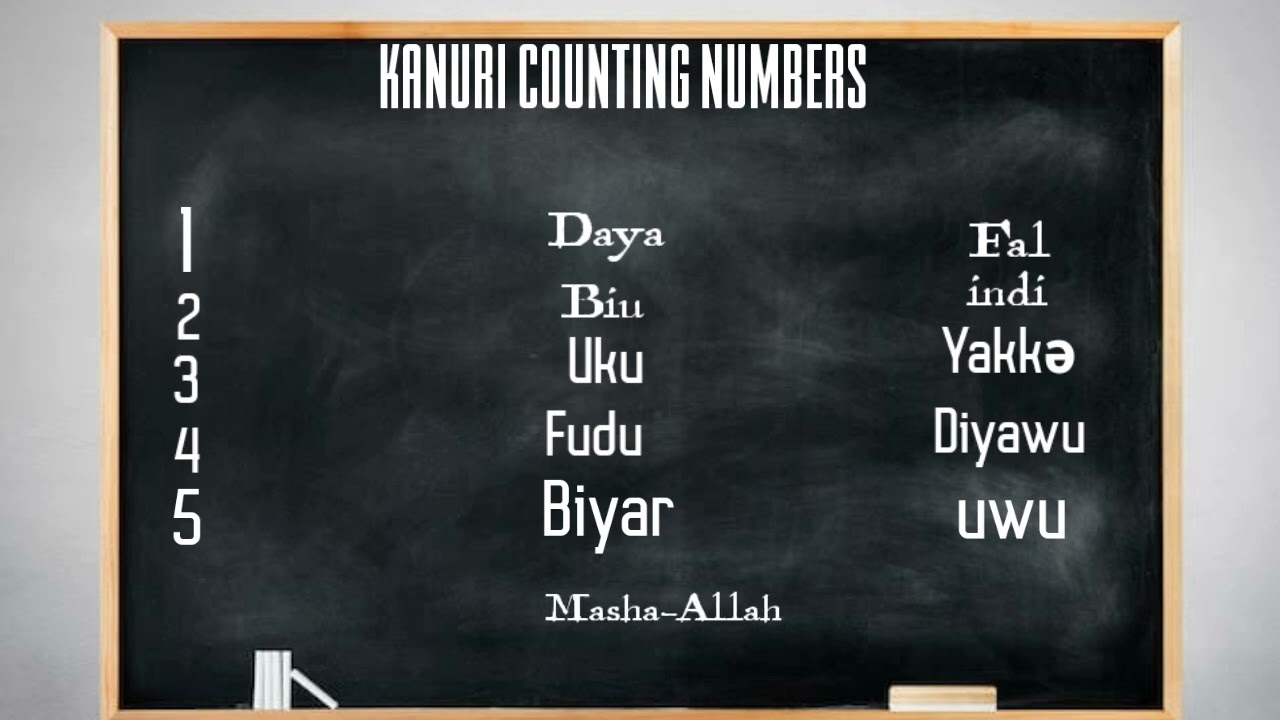 KANURI COUNTING NUMBERS
1 Daya Fal
2 Biu indi
3 Uku Yakkə
4 Fudu Diyawu
5 Biyar uwu
Masha-Allah